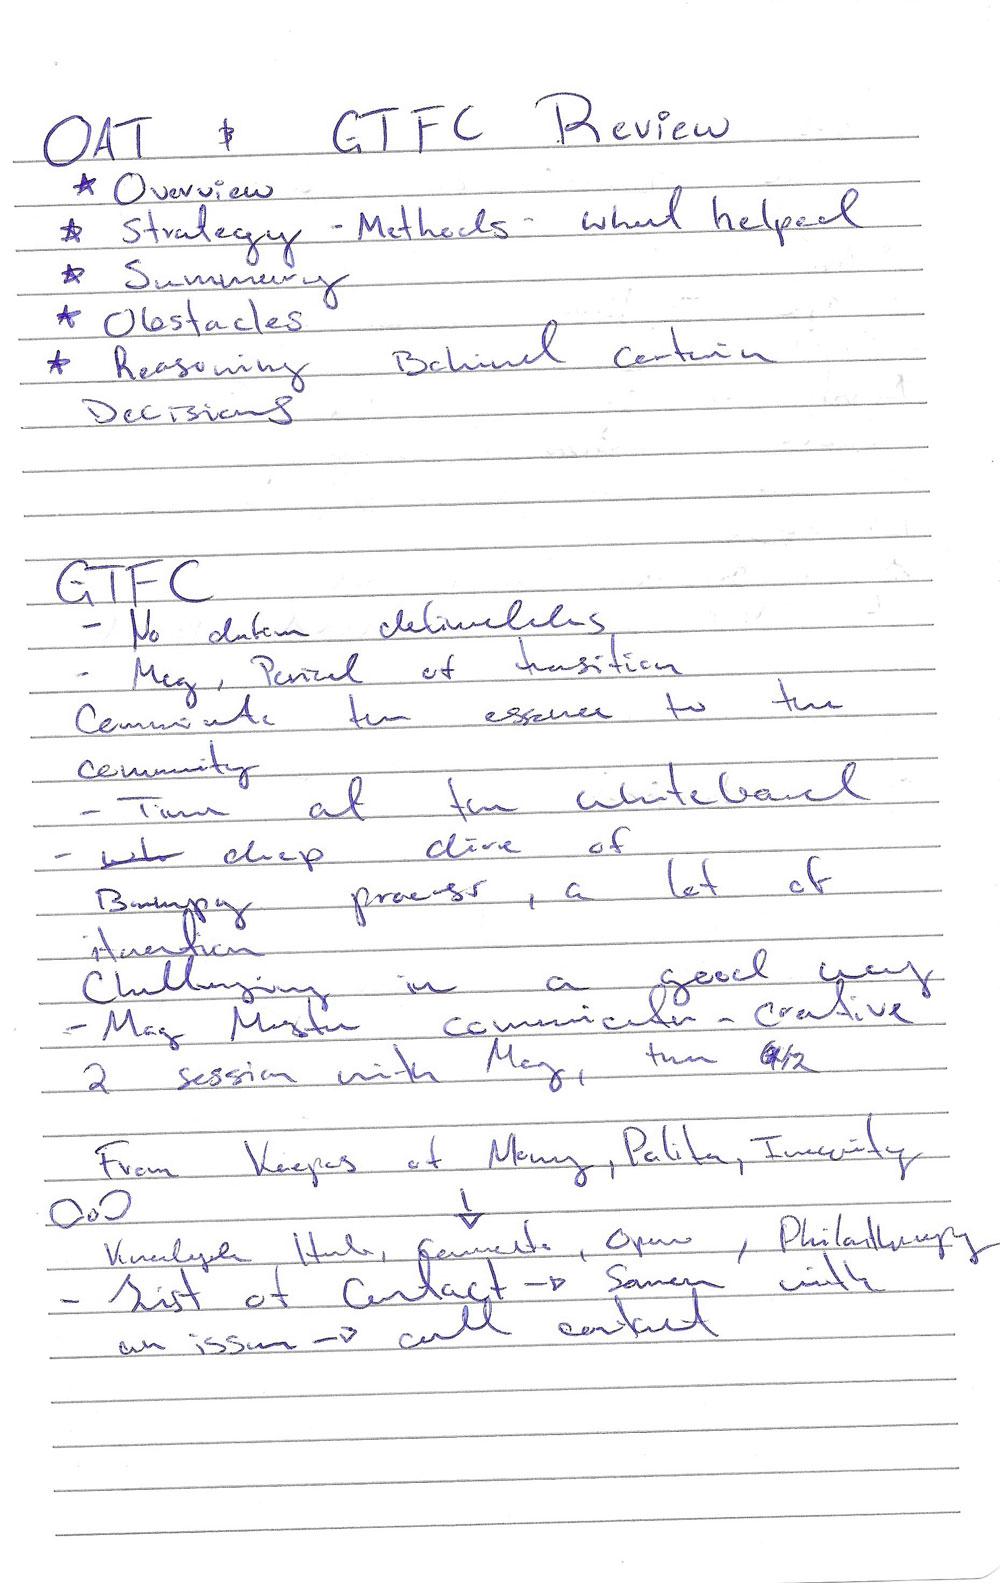 OAT & GTFC Review
* Overview
* Strategy - Methods - what helped
* Summary
* Obstacles
* Reasoning Behind certain
Decisions
GTFC
- No deliverables
- Meg, Period of transition
Communicate the essence to the
community
- Time at the whiteboard
- deep dive of
Bumpy process, a lot of
iteration
Challenging in a good way
- Meg Master communicator - creative
2 session with Meg,
From Keepers of Money, Politics, Inequity
↓
Knowledge Hub, Connects, Open, Philanthropy
- List of Contact → Someone with
an issue → call contact